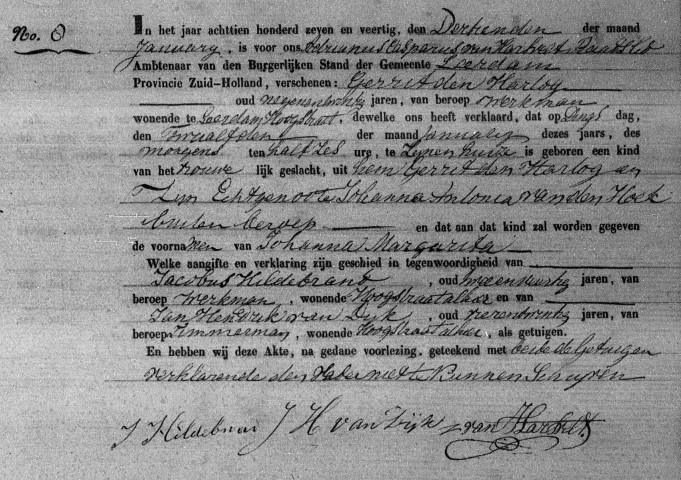 No. 8
In het jaar achttien honderd zeven en veertig, den Dertienden der maand
January, is voor ons, Adrianus Casparus van Hartrelt
Ambtenaar van den Burgerlijken Stand der Gemeente Leerdam
Provincie Zuid-Holland, verschenen: Gerrit den Hartog
oud negenentwintig jaren, van beroep werkman
wonende te Leerdam Hoogstraat, dewelke ons heeft verklaard, dat op Dings dag,
den Twaalfden der maand January dezes jaars, des
morgens ten half zes ure, te zijnen huize is geboren een kind
van het vrouwe lijk geslacht, uit hem Gerrit den Hartog en
Zijn Echtgenoote Johanna Antonia van den Hoek
buiten beroep en dat aan dat kind zal worden gegeven
de voornamen van Johanna Margarita
Welke aangifte en verklaring zijn geschied in tegenwoordigheid van
Jacobus Hildebrand, oud jaren, van
beroep Werkman, wonende Hoogstraat alaar en van
Jan Hendrik van Dijk, oud jaren, van
beroep Timmerman, wonende Hoogstraat aldaar, als getuigen.
En hebben wij deze Akte, na gedane voorlezing, geteekend met beide de Getuigen
verklarende den Vader niet te kunnen Schryven
J Hildebran J H van Dijk van Hartrelt